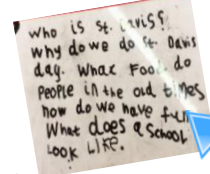 who is st. Davis?
why do we do st. Davis
day. What Food do
People in the old times
how do we have fun
What does a School
LOOK LIKE.